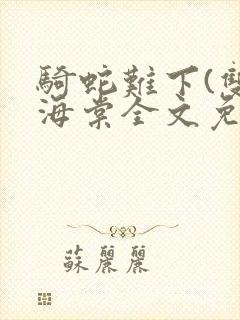 騎蛇難下(雙
海棠全文免
蘇麗麗